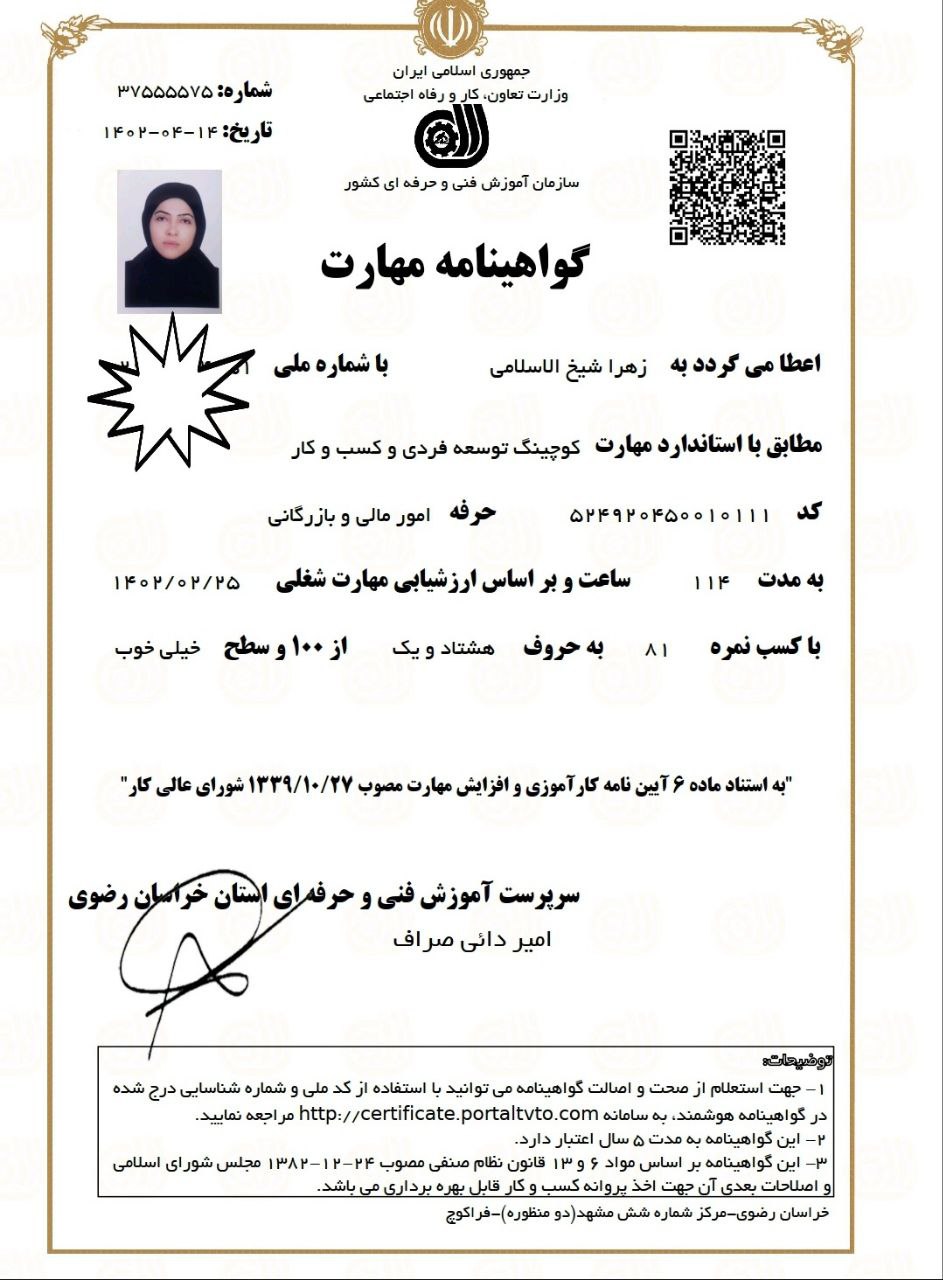 جمهوری اسلامی ایران
وزارت تعاون، کار و رفاه اجتماعی
سازمان آموزش فنی و حرفه ای کشور
شماره: ۳۷۵۵۵۵۷۵
تاریخ: ۱۴-۰۴-۱۴۰۲
گواهینامه مهارت
اعطا می گردد به زهرا شیخ الاسلامی با شماره ملی
مطابق با استاندارد مهارت کوچینگ توسعه فردی و کسب و کار
کد ۵۲۴۹۲۰۴۵۰۰۱۰۱۱۱ حرفه امور مالی و بازرگانی
به مدت ۱۱۴ ساعت و بر اساس ارزشیابی مهارت شغلی ۱۴۰۲/۰۲/۲۵
با کسب نمره ۸۱ به حروف هشتاد و یک از ۱۰۰ و سطح خیلی خوب
"به استناد ماده ۶ آیین نامه کارآموزی و افزایش مهارت مصوب ۱۳۳۹/۱۰/۲۷ شورای عالی کار"
سرپرست آموزش فنی و حرفه ای استان خراسان رضوی
امیر دائی صراف
توضیحات:
۱- جهت استعلام از صحت و اصالت گواهینامه می توانید با استفاده از کد ملی و شماره شناسایی درج شده
در گواهینامه هوشمند، به سامانه http://certificate.portaltvto.com مراجعه نمایید.
۲- این گواهینامه به مدت ۵ سال اعتبار دارد.
۳- این گواهینامه بر اساس مواد ۶ و ۱۳ قانون نظام صنفی مصوب ۲۴-۱۲-۱۳۸۲ مجلس شورای اسلامی
و اصلاحات بعدی آن جهت اخذ پروانه کسب و کار قابل بهره برداری می باشد.
خراسان رضوی-مرکز شماره شش مشهد(دو منظوره)-فراکوچ